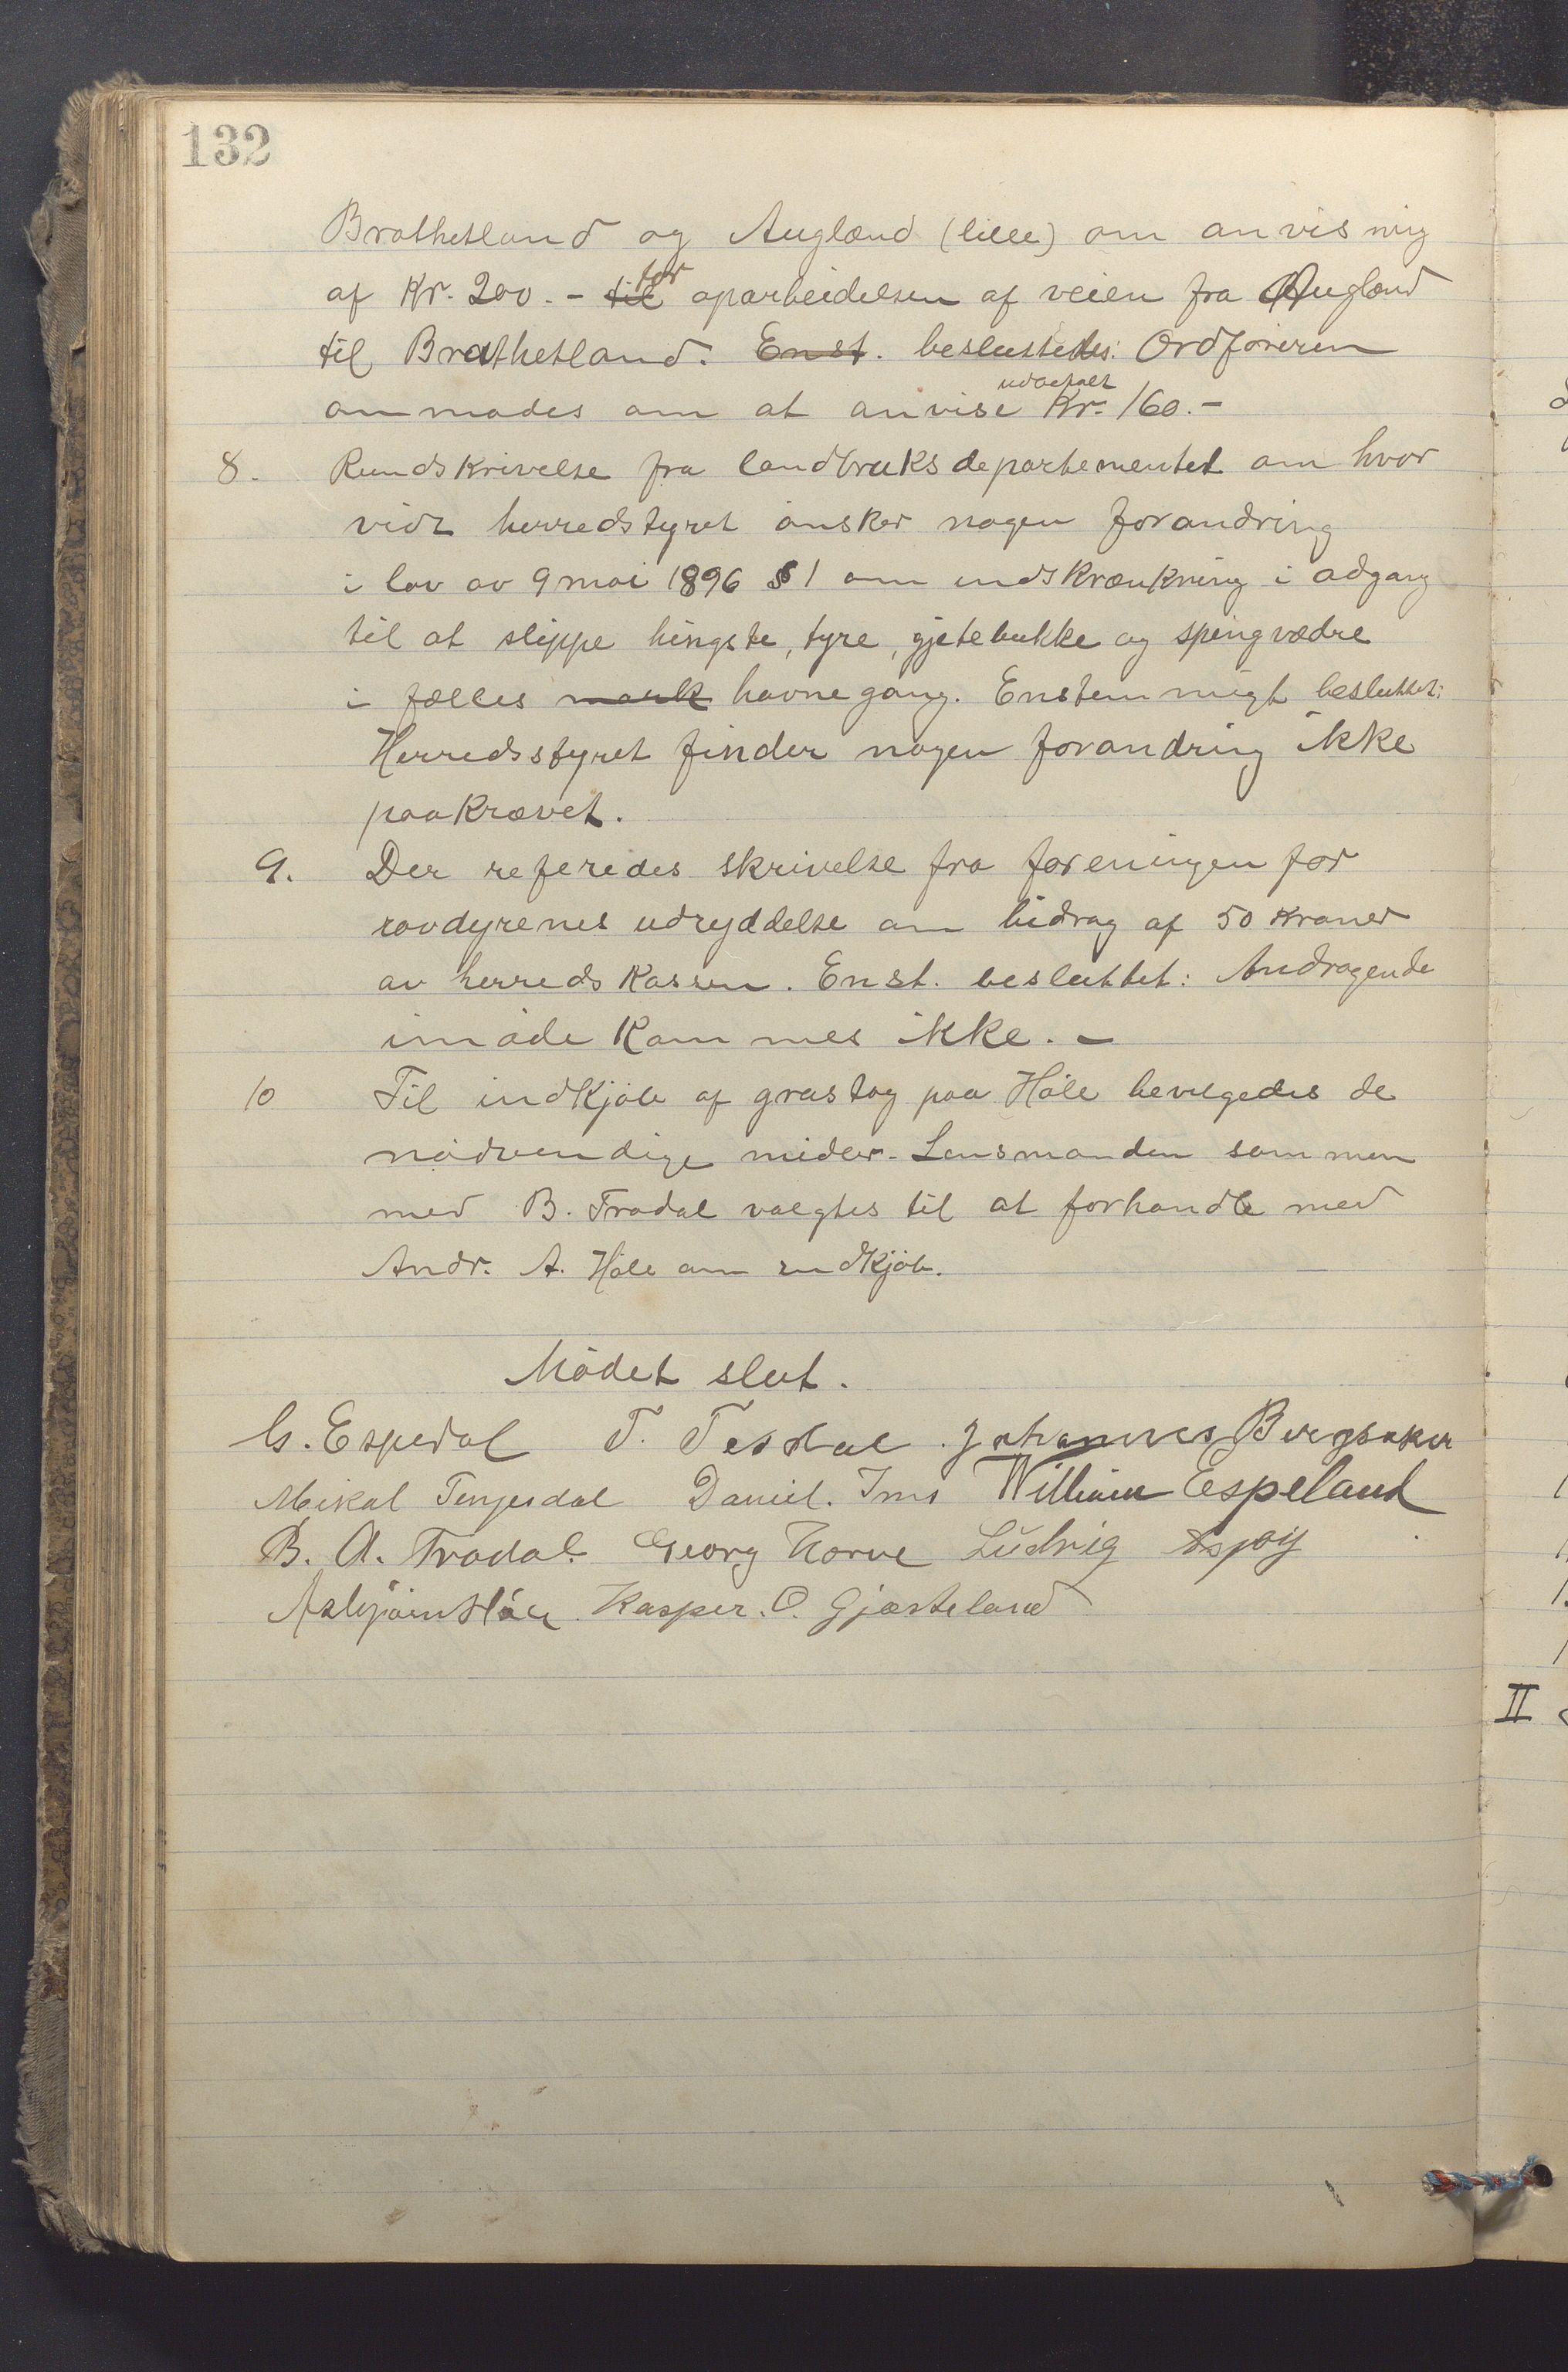 132
Brathetland og Augland (lille) om anvisning
af Kr. 200.- til for oparbeidelsen af veien fra Augland
til Brathetland. Enst. besluttedes: Ordføreren
anmodes om at anvise udbetalt Kr. 160.-
8. Rundskrivelse fra landbruksdepartementet om hvor
vidt herredstyret ønsker nogen forandring
i lov av 9 mai 1896 § 1 om indskrænkning i adgang
til at slippe hingste, tyre, gjetebukke og springvædre
i fælles mark havnegang. Enstemmigt besluttet:
Herredsstyret finder nogen forandring ikke
paakrævet.
9. Der referedes skrivelse fra foreningen for
rovdyrenes udryddelse om bidrag af 50 kroner
av herredskassen. Enst. besluttet: Andragende
imødekommes ikke. -
10 Til indkjøb af grustag paa Høle bevilgedes de
nødvendige midler. Lensmanden sammen
med B. Tradal valgtes til at forhandle med
Andr. A. Høle om indkjøb.
Mødet slut.
G. Espedal T. Tesdal Johannes Bergsaker
Mikal Tengesdal Daniel. Ims William Espeland
B. A. Tradal. Georg Norve Ludvig Aspøy
Asbjørn Kasper. O. Gjæsteland
II